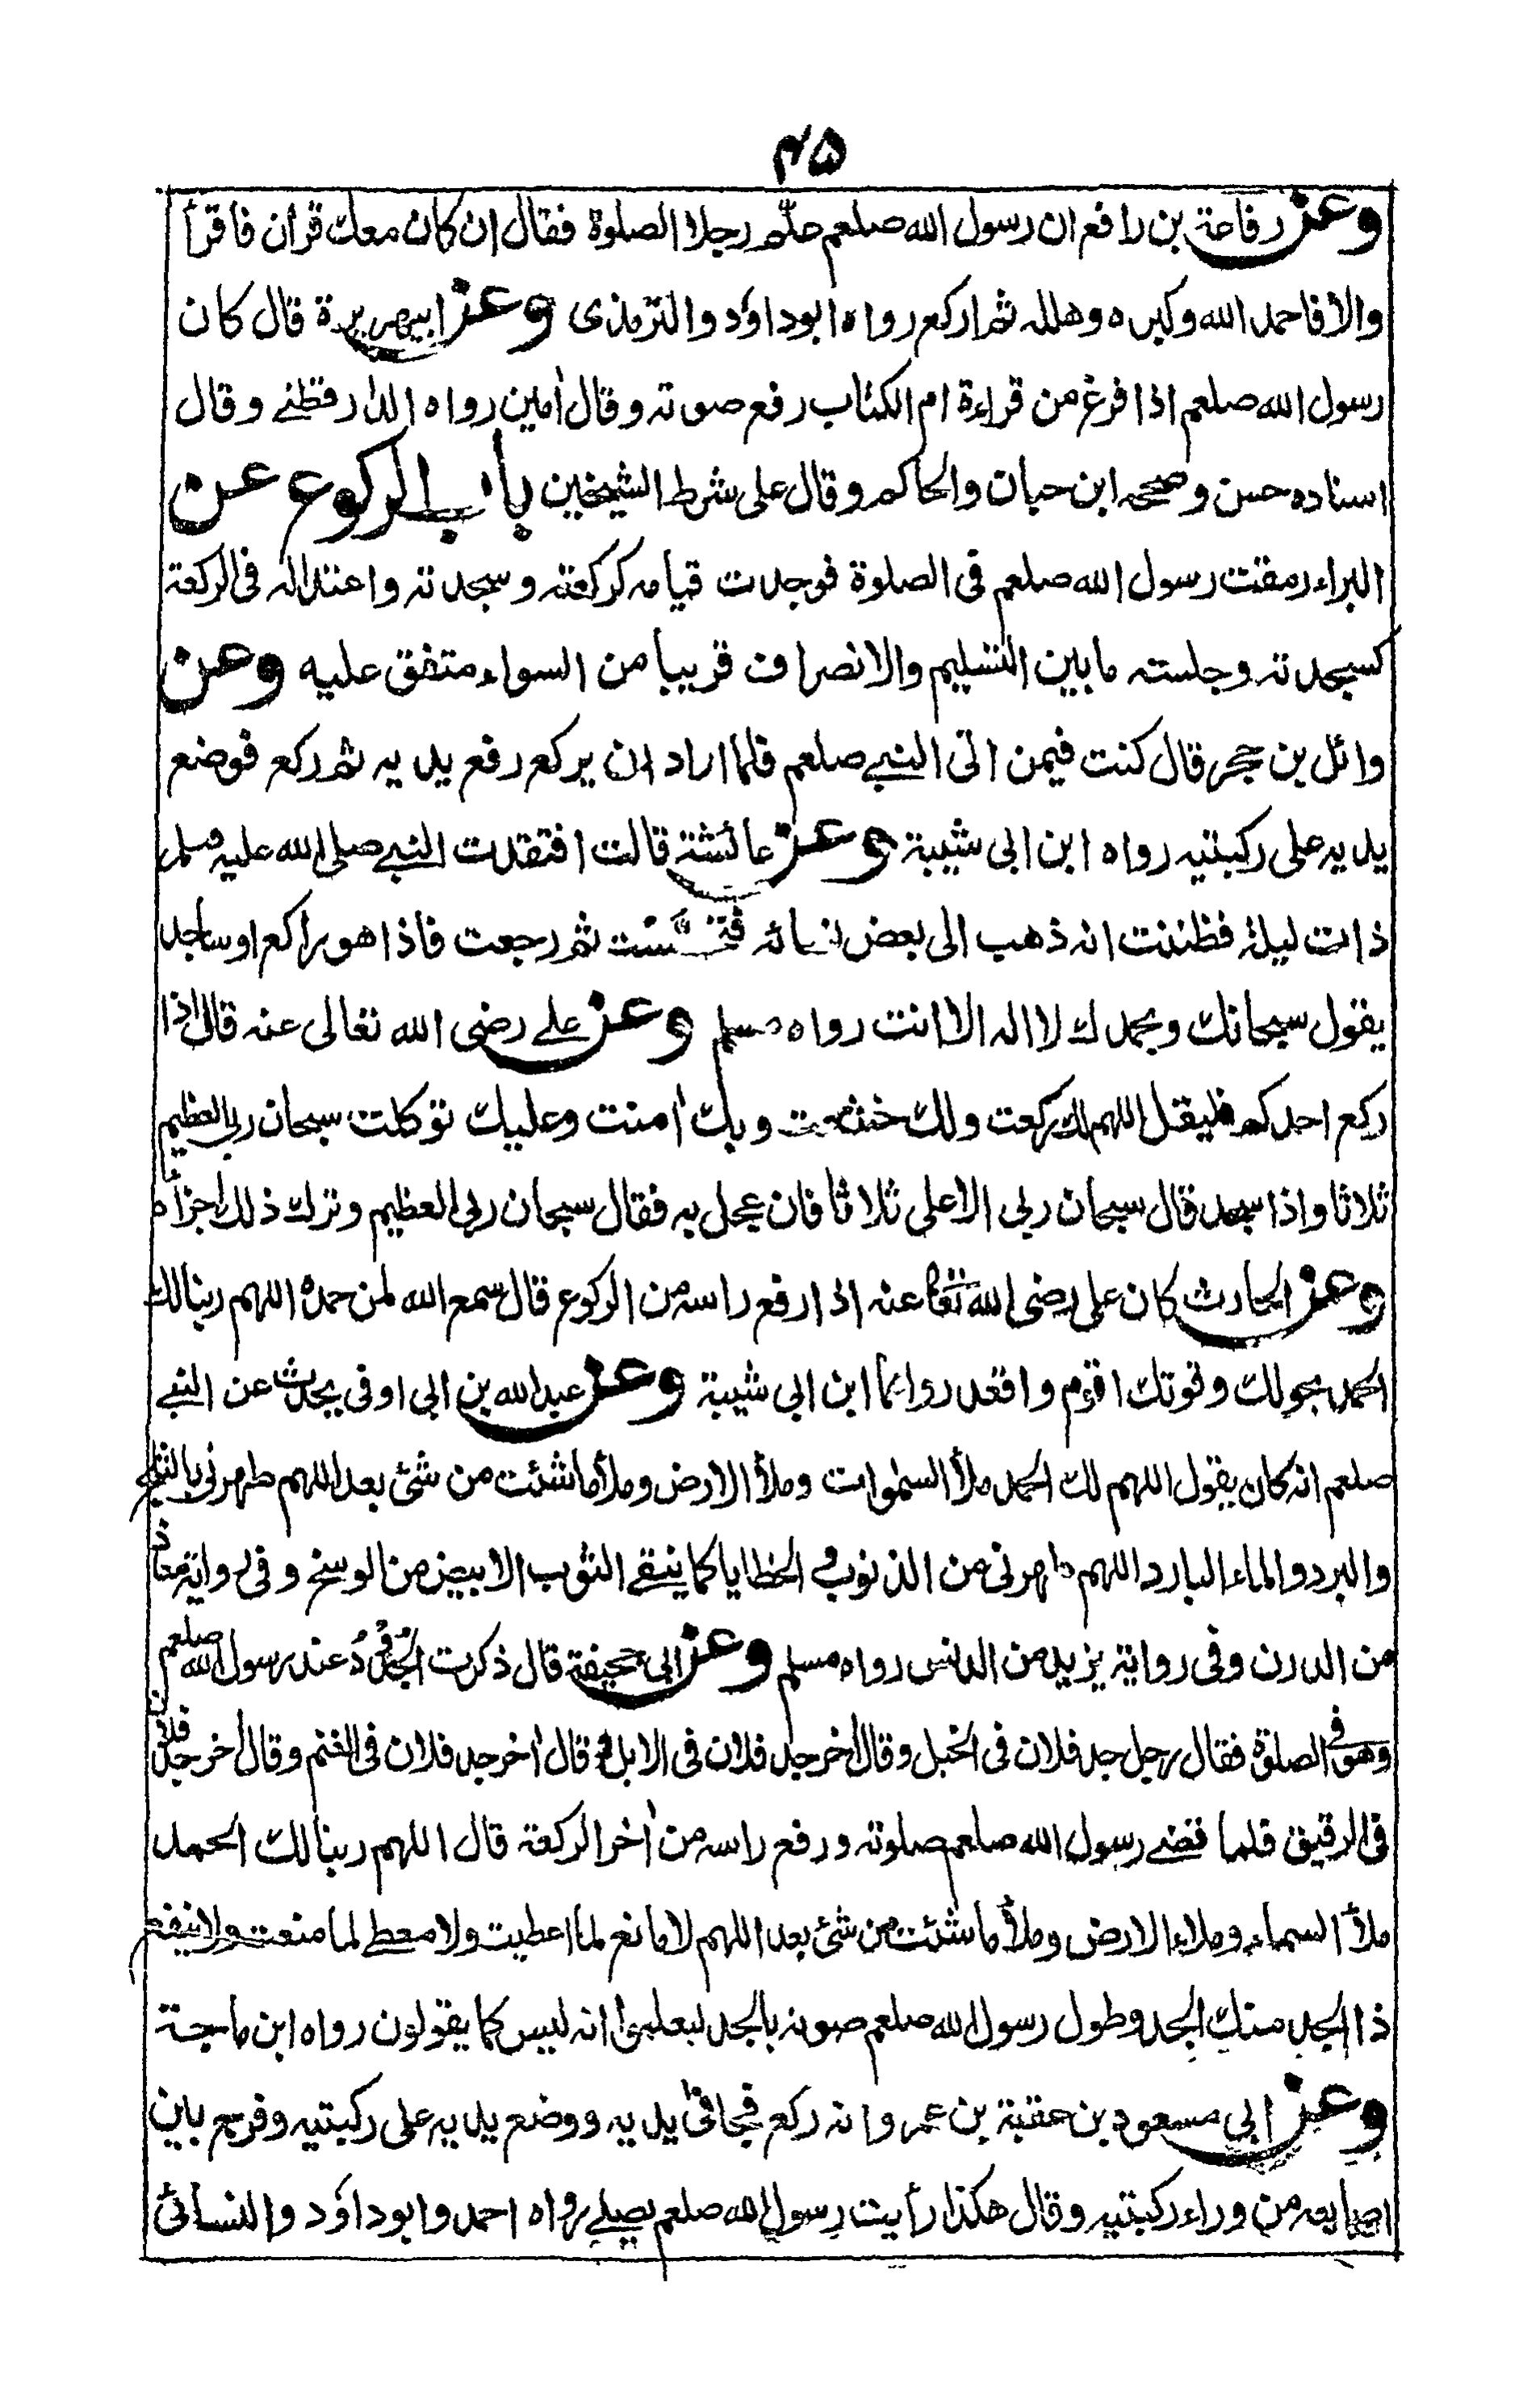 ۴۵
وعن رفاعة بن رافع ان رسول الله صلعم علّم رجلا الصلوة فقال ان كان معك قرأن فاقرأ
والا فاحمد الله وكبره وهلله ثم اركع رواه ابوداؤد والترمذى وعن ابيهريرة قال كان
رسول الله صلعم اذا فرغ من قراءة ام الكتاب رفع صوته وقال أمين رواه الدارقطنے وقال
اسناده حسن وصححه ابن حبان والحاكم وقال على شرط الشيخين باب الركوع عن
البراء رمقت رسول الله صلعم فى الصلوة فوجدت قيامه كركعته وسجدته واعتداله فى الركعة
كسجدته وجلسته مابين التسليم والانصراف قريبا من السواء متفق عليه وعن
وائل بن حجر قال كنت فيمن اتى النبے صلعم فلما اراد ان يركع رفع يديه ثم ركع فوضع
يديه على ركبتيه رواه ابن ابى شيبة وعن عائشة قالت افتقدت النبے صلى الله عليه وسلم
ذات ليلة فظننت انه ذهب الى بعض نسائه ثم رجعت فاذا هو راكع او ساجد
يقول سبحانك وبحمدك لا اله الا انت رواه مسلم وعن علے رضى الله تعالى عنه قال اذا
ركع احدكم فليقل اللهم لك ركعت ولك خشعت وبك أمنت وعليك توكلت سبحان ربى العظيم
ثلاثا واذا سجد قال سبحان ربى الاعلى ثلاثا فان عجل به فقال سبحان ربى العظيم وترك ذلك اجزأه
وعن الحارث كان على رضى الله تعا عنه اذا رفع راسه من الركوع قال سمع الله لمن حمده اللهم ربنا لك
الحمد بحولك وقوتك اقوم واقعد رواهما ابن ابى شيبة وعن عبدالله بن ابى اوفى يحدث عن النبے
صلعم انه كان يقول اللهم لك الحمد ملأ السمٰوات وملأ الارض وملأ ماشئت من شئ بعد اللهم طهرنى بالثلج
والبرد والماء البارد اللهم طهرنى من الذنوب والخطايا كما ينقے الثوب الابيض من الوسخ وفى رواية معاذ
من الدرن وفى رواية يزيد من الدنس رواه مسلم وعن ابى جحيفة قال ذكرت الجدود عند رسول الله صلعم
وهو فى الصلوة فقال رجل جد فلان فى الخيل وقال أخر جد فلان فى الابل وقال أخر جد فلان فى الغنم وقال أخر جد فلان
فى الرقيق فلما قضے رسول الله صلعم صلوته ورفع راسه من أخر الركعة قال اللهم ربنا لك الحمد
ملأ السماء وملاء الارض وملأ ماشئت من شئ بعد اللهم لامانع لما اعطيت ولا معطے لما منعت ولا ينفع
ذا الجد منك الجد وطول رسول الله صلعم صوته بالجد ليعلموا انه ليس كما يقولون رواه ابن ماجة
وعن ابى مسعود بن عقبة بن عمرو انه ركع فجافى يديه ووضع يديه على ركبتيه وفرج بين
اصابعه من وراء ركبتيه وقال هكذا رأيت رسول الله صلعم يصلے رواه احمد وابوداؤد والنسائى